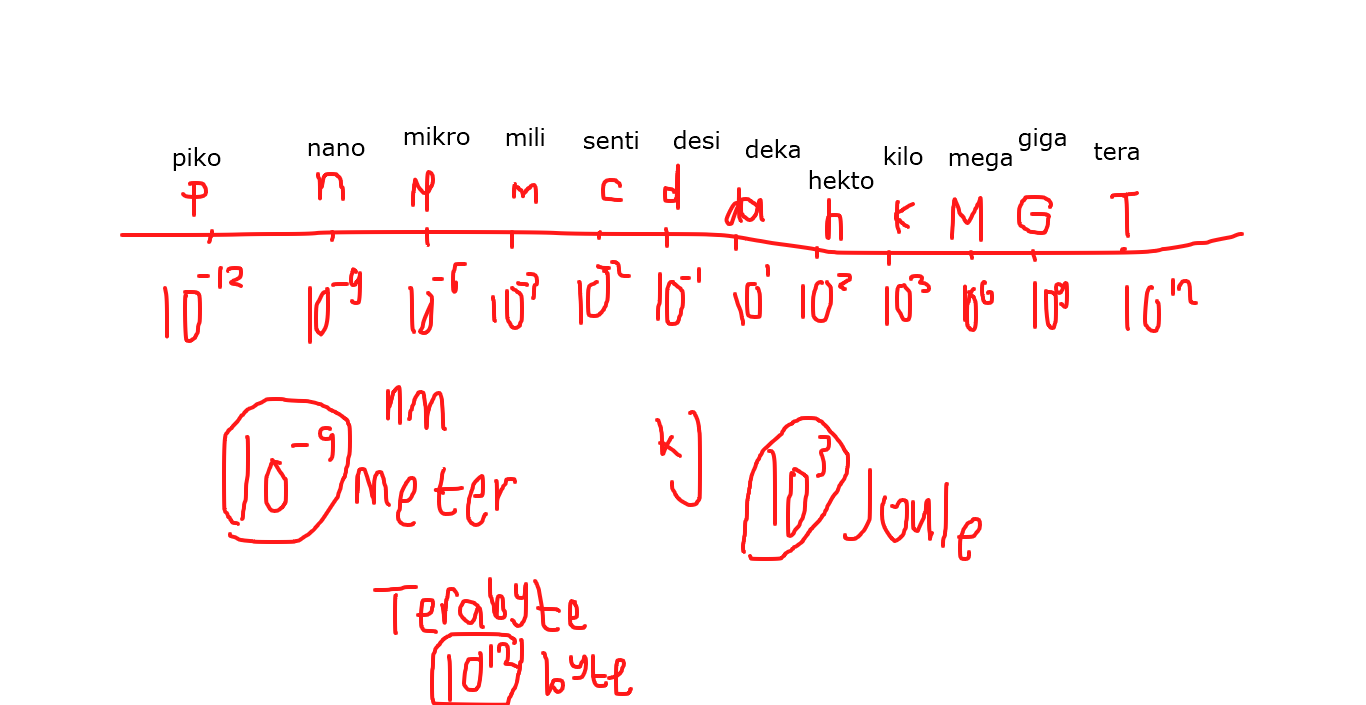 piko nano mikro mili senti desi deka hekto kilo mega giga tera
p n μ m c d da h k M G T
10⁻¹² 10⁻⁹ 10⁻⁶ 10⁻³ 10⁻² 10⁻¹ 10¹ 10² 10³ 10⁶ 10⁹ 10¹²
nm
10⁻⁹ meter
kJ
10³ Joule
Terabyte
10¹² byte